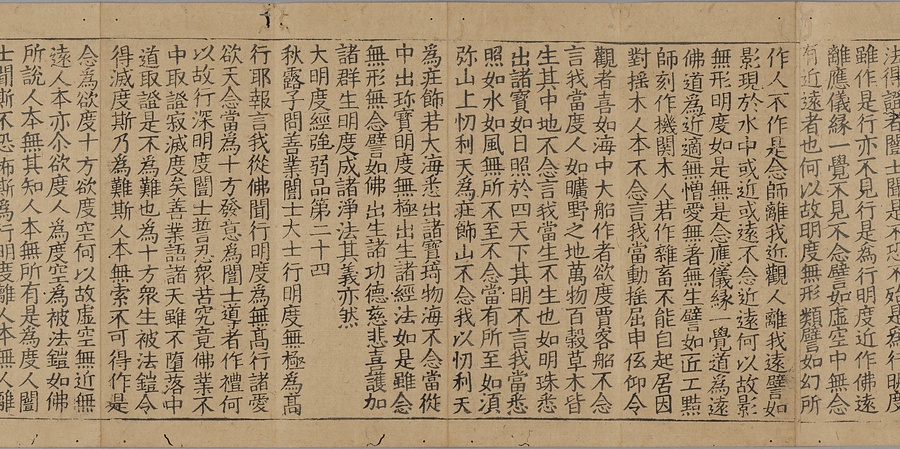 法得證者闓士聞是不恐不殆是為行明度
雖作是行亦不見行是為行明度近作佛遠
離應儀緣一覺不見不念譬如虛空中無念
有近遠者也何以故明度無形類譬如幻所
作人不作是念師離我近觀人離我遠譬如
影現於水中或近或遠不念近遠何以故影
無形明度如是無是念應儀緣一覺道為遠
佛道為近適無憎愛無著無生譬如匠工黠
師刻作機關木人若作雜畜不能自起居因
對搖木人本不念言我當動搖屈申低仰令
觀者喜如海中大船作者欲度賈客船不念
言我當度人如曠野之地萬物百穀草木皆
生其中地不念言我當生不生也如明珠悉
出諸寶如日照於四天下其明不言我當悉
照如水如風無所不至不念當有所至如湏
弥山上忉利天為莊飾山不念我以忉利天
為莊飾若大海悉出諸寶琦物海不念當從
中出珎寶明度無極出生諸經法如是雖念
無形無念譬如佛出生諸功德慈悲喜護加
諸群生明度成諸淨法其義亦然
大明度經強弱品第二十四
秋露子問善業闓士大士行明度無極為髙
行耶報言我從佛聞行明度為無髙行諸愛
欲天念當為十方發意為闓士導者作禮何
以故行深明度闓士誓忍衆苦究竟佛業不
中取證寂滅度矣善業語諸天雖不墮落中
道取證是不為難也為十方衆生被法鎧令
得滅度斯乃為難斯人本無索不可得作是
念為欲度十方欲度空何以故虛空無近無
遠人本亦尒欲度人為度空為被法鎧如佛
所說人本無其知人本無所有是為度人闓
士聞斯不恐怖斯為行明度離人本無人離